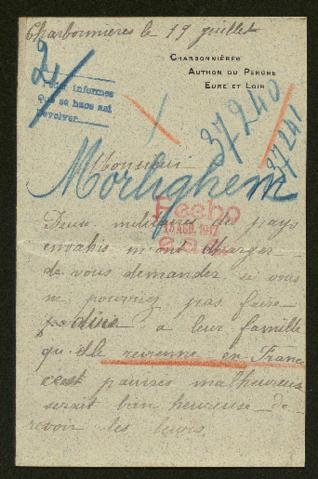 Charbonnieres le 19 juillet
CHARBONNIÈRES
AUTHON DU PERCHE
EURE ET LOIR
2
informes
que se hace así
devolver
37240
37241
Monsieur
Morlighem
Recbo
AGO. 1917
Deux militaires des pays
envahis m'ont charger
de vous demander si vous
ne pourriez pas faire
dire a leur famille
qu'ils revienne en France
ces pauvres malheureux
serait bien heureuse de
revoir les leurs.